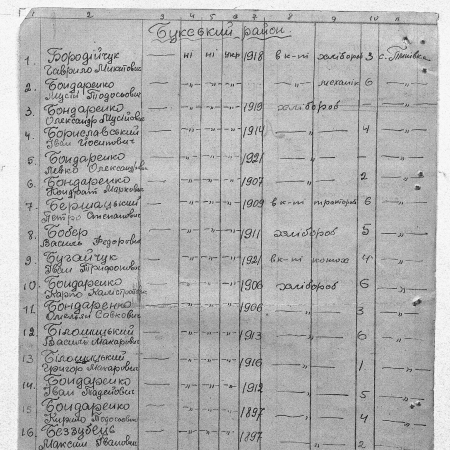 1 2 3 4 5 6 7 8 9 10 11
Букський район.
1. Бородійчук Гаврило Микитович — ні ні укр 1918 в к-пі хлібороб 3 с. Тинівка
2. Бондаренко Мусій Тодосьович — " " " — механік 6 "
3. Бондаренко Олександр Мусійович — " " " 1919 хлібороб — — "
4. Бориславський Іван Йосипович — " " " 1914 — " — 4 "
5. Бондаренко Левко Олександрович — " " " 1921 — " — "
6. Бондаренко Кіндрат Маркович — " " " 1907 — " — 2 "
7. Бершацький Петро Омелянович — " " " 1909 в к-пі тракторів 6 "
8. Бобер Василь Федорович — " " " 1911 хлібороб 5 "
9. Бугайчук Іван Трифонович — " " " 1921 в к-пі конюх 4 "
10. Бондаренко Карпо Калістратович — " " " 1906 хлібороб 6 "
11. Бондаренко Омелян Савкович — " " " 1906 — " — 3 "
12. Білошицький Василь Макарович — " " " 1913 — " — 6 "
13. Білошицький Григор Макарович — " " " 1916 — " — 1 "
14. Бондаренко Іван Тадейович — " " " 1912 — " — 5 "
15. Бондаренко Кирило Тодосьович — " " " 1897 — " — 4 "
16. Беззубець Максим Іванович — " " " 1897 — " — 2 "